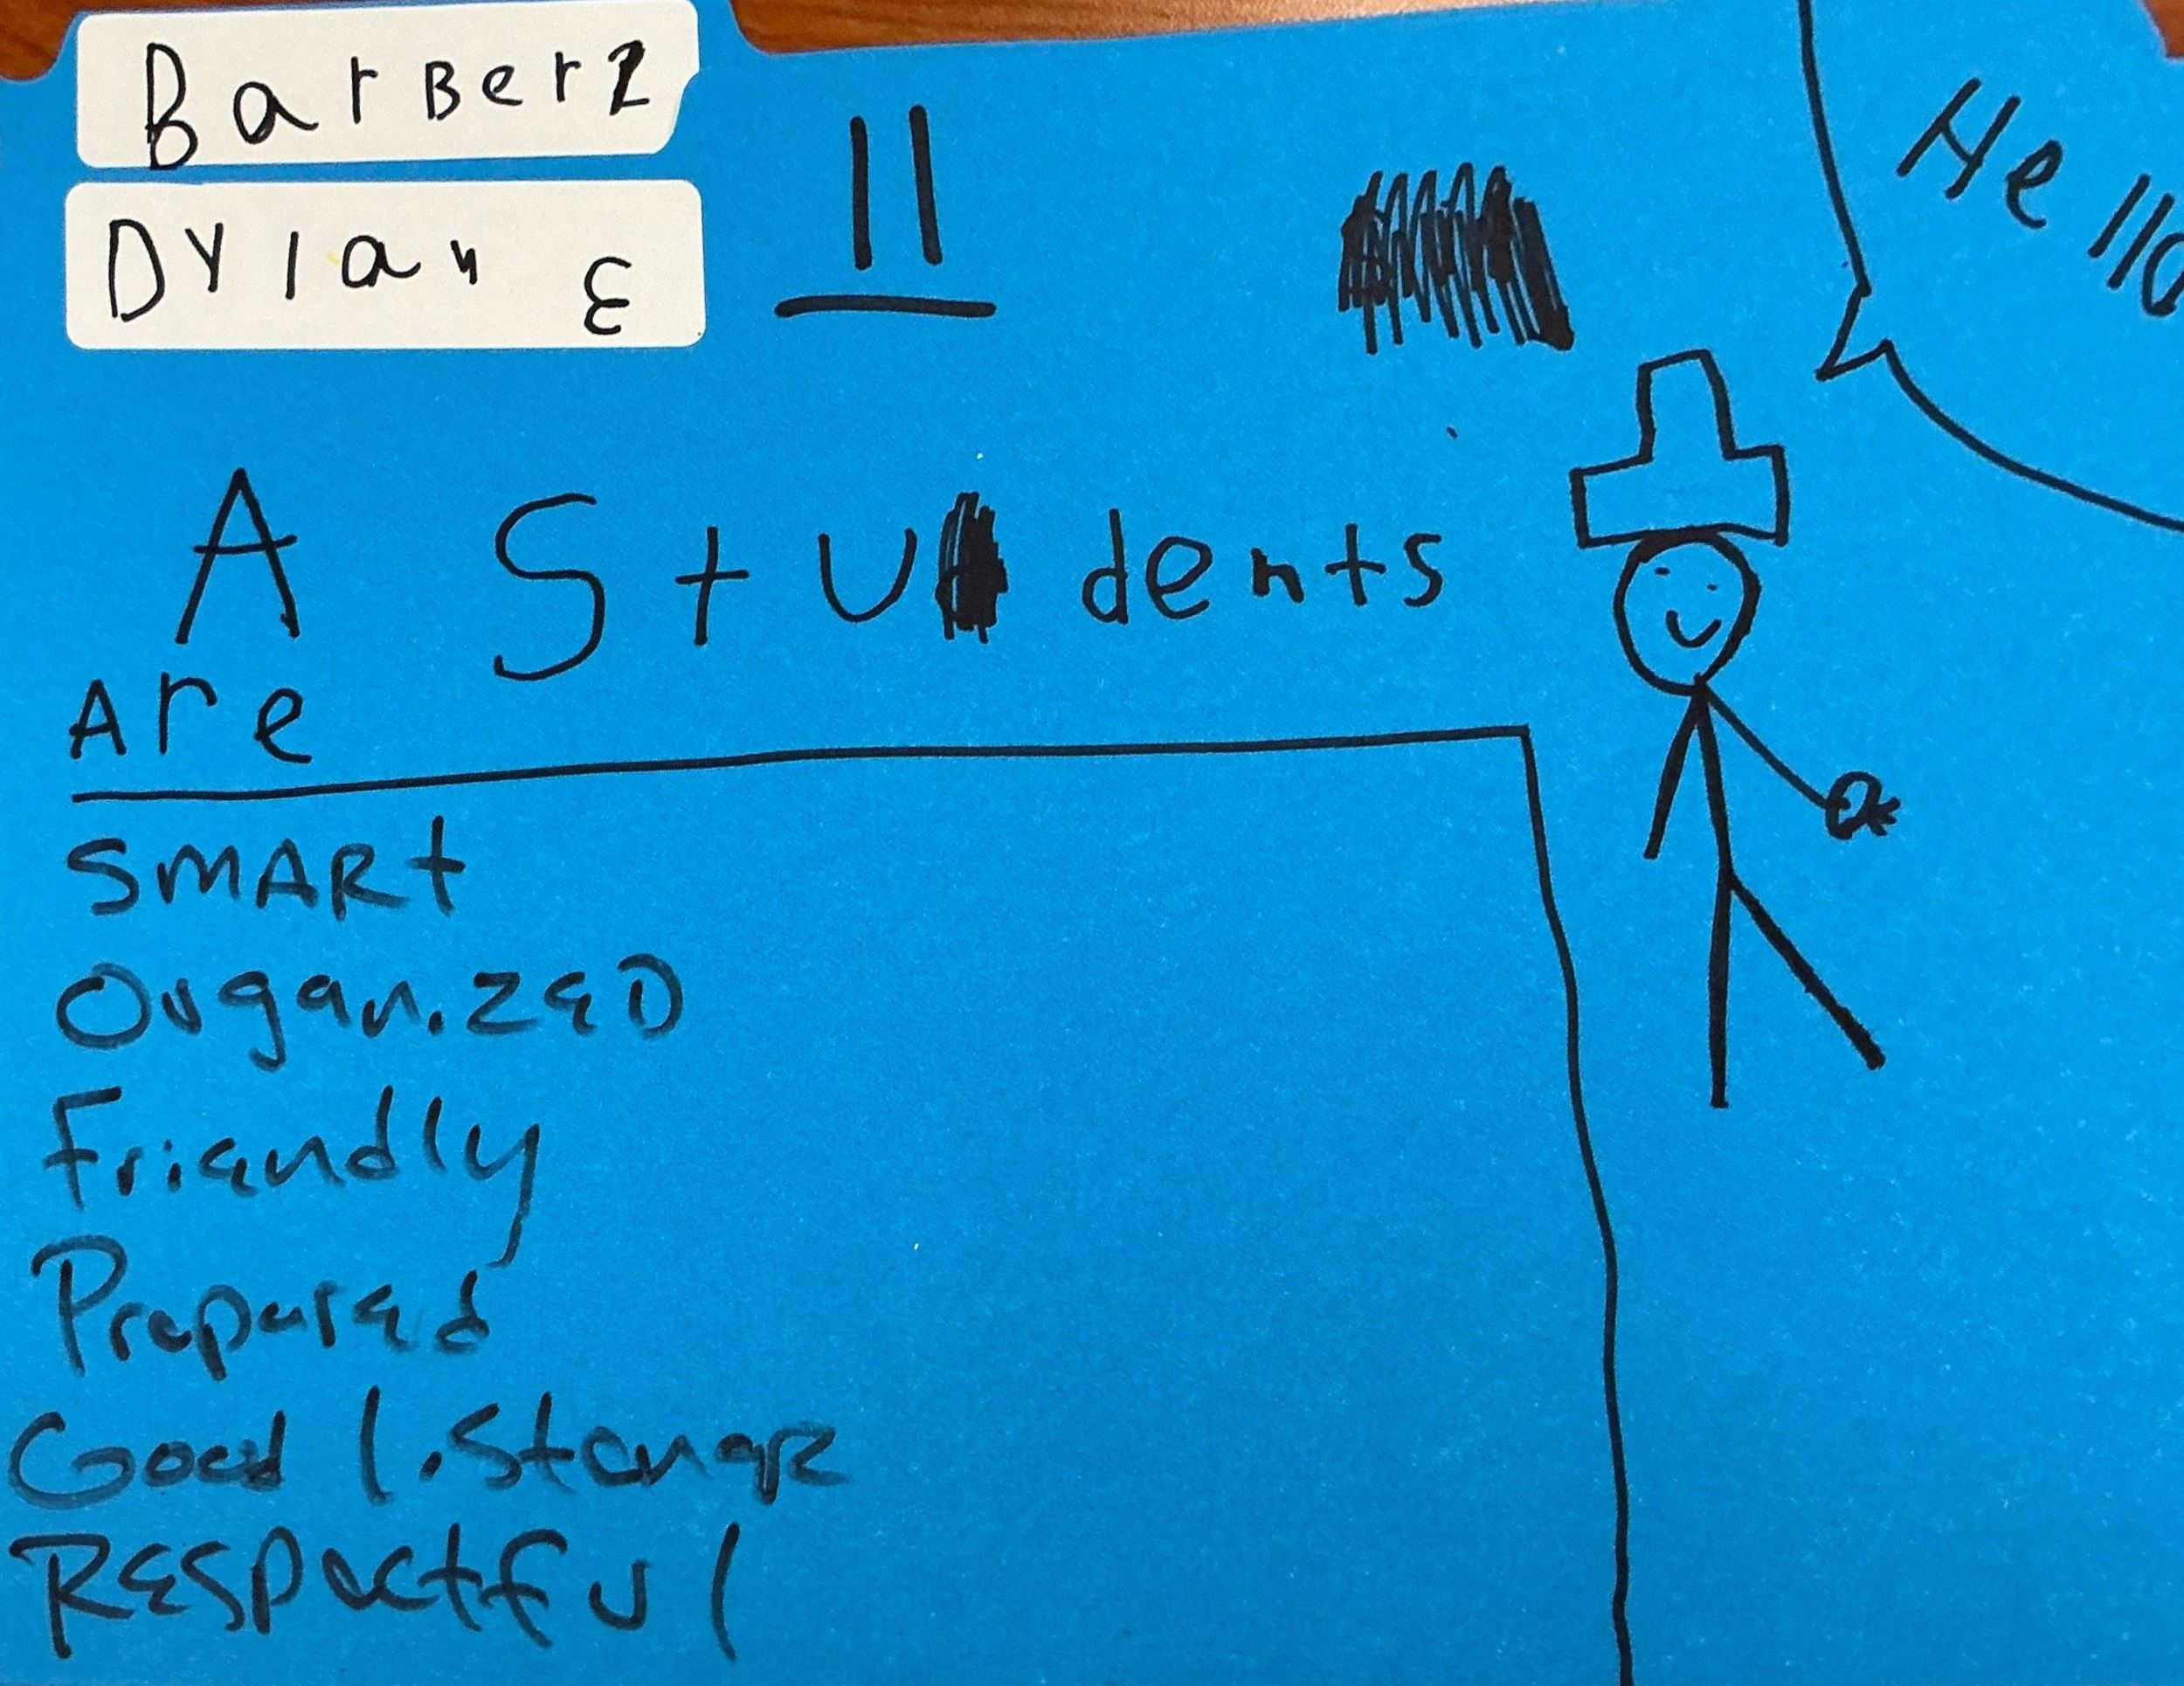 BarBer2
Dylan E
11
Hello
A Students
Are
SMARt
OrganizeD
Friendly
Prepared
Good listener
REspectful